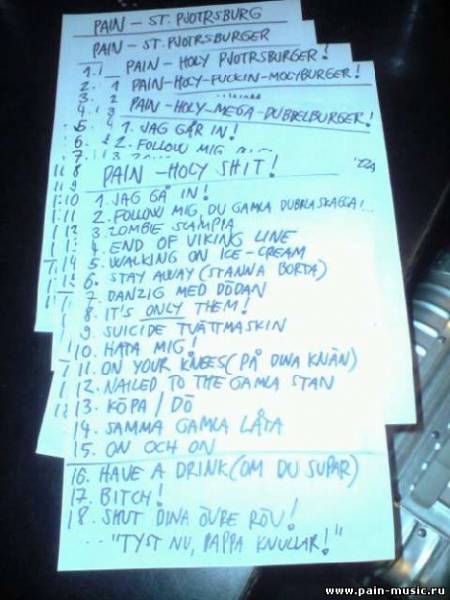 PAIN - ST. PJOTRSBURG
PAIN - ST. PJOTRSBURGER
PAIN - HOLY PJOTRSBURGER!
PAIN-HOLY-FUCKIN-MOCYBURGER!
PAIN-HOLY-MEGA-DUBBELBURGER!
1. JAG GÅR IN!
2. FOLLOW MIG
PAIN - HOLY SHIT!
1. JAG GÅ IN!
2. FOLLOW MIG, DU GAMLA DUBBLASKAGGA!...
3. ZOMBIE SLAMPIA
4. END OF VIKING LINE
5. WALKING ON ICE-CREAM
6. STAY AWAY (STANNA BORTA)
7. DANZIG MED DÖDAN
8. IT'S ONLY THEM!
9. SUICIDE TVÄTTMASKIN
10. HATA MIG!
11. ON YOUR KNEES (PÅ DINA KNÄN)
12. NAILED TO THE GAMLA STAN
13. KÖPA / DÖ
14. SAMMA GAMLA LÅTA
15. ON OCH ON
16. HAVE A DRINK (OM DU SUPAR)
17. BITCH!
18. SHUT DINA ÖVRE RÖV!
... "TYST NU, PAPPA KNULLAR!"
www.pain-music.ru